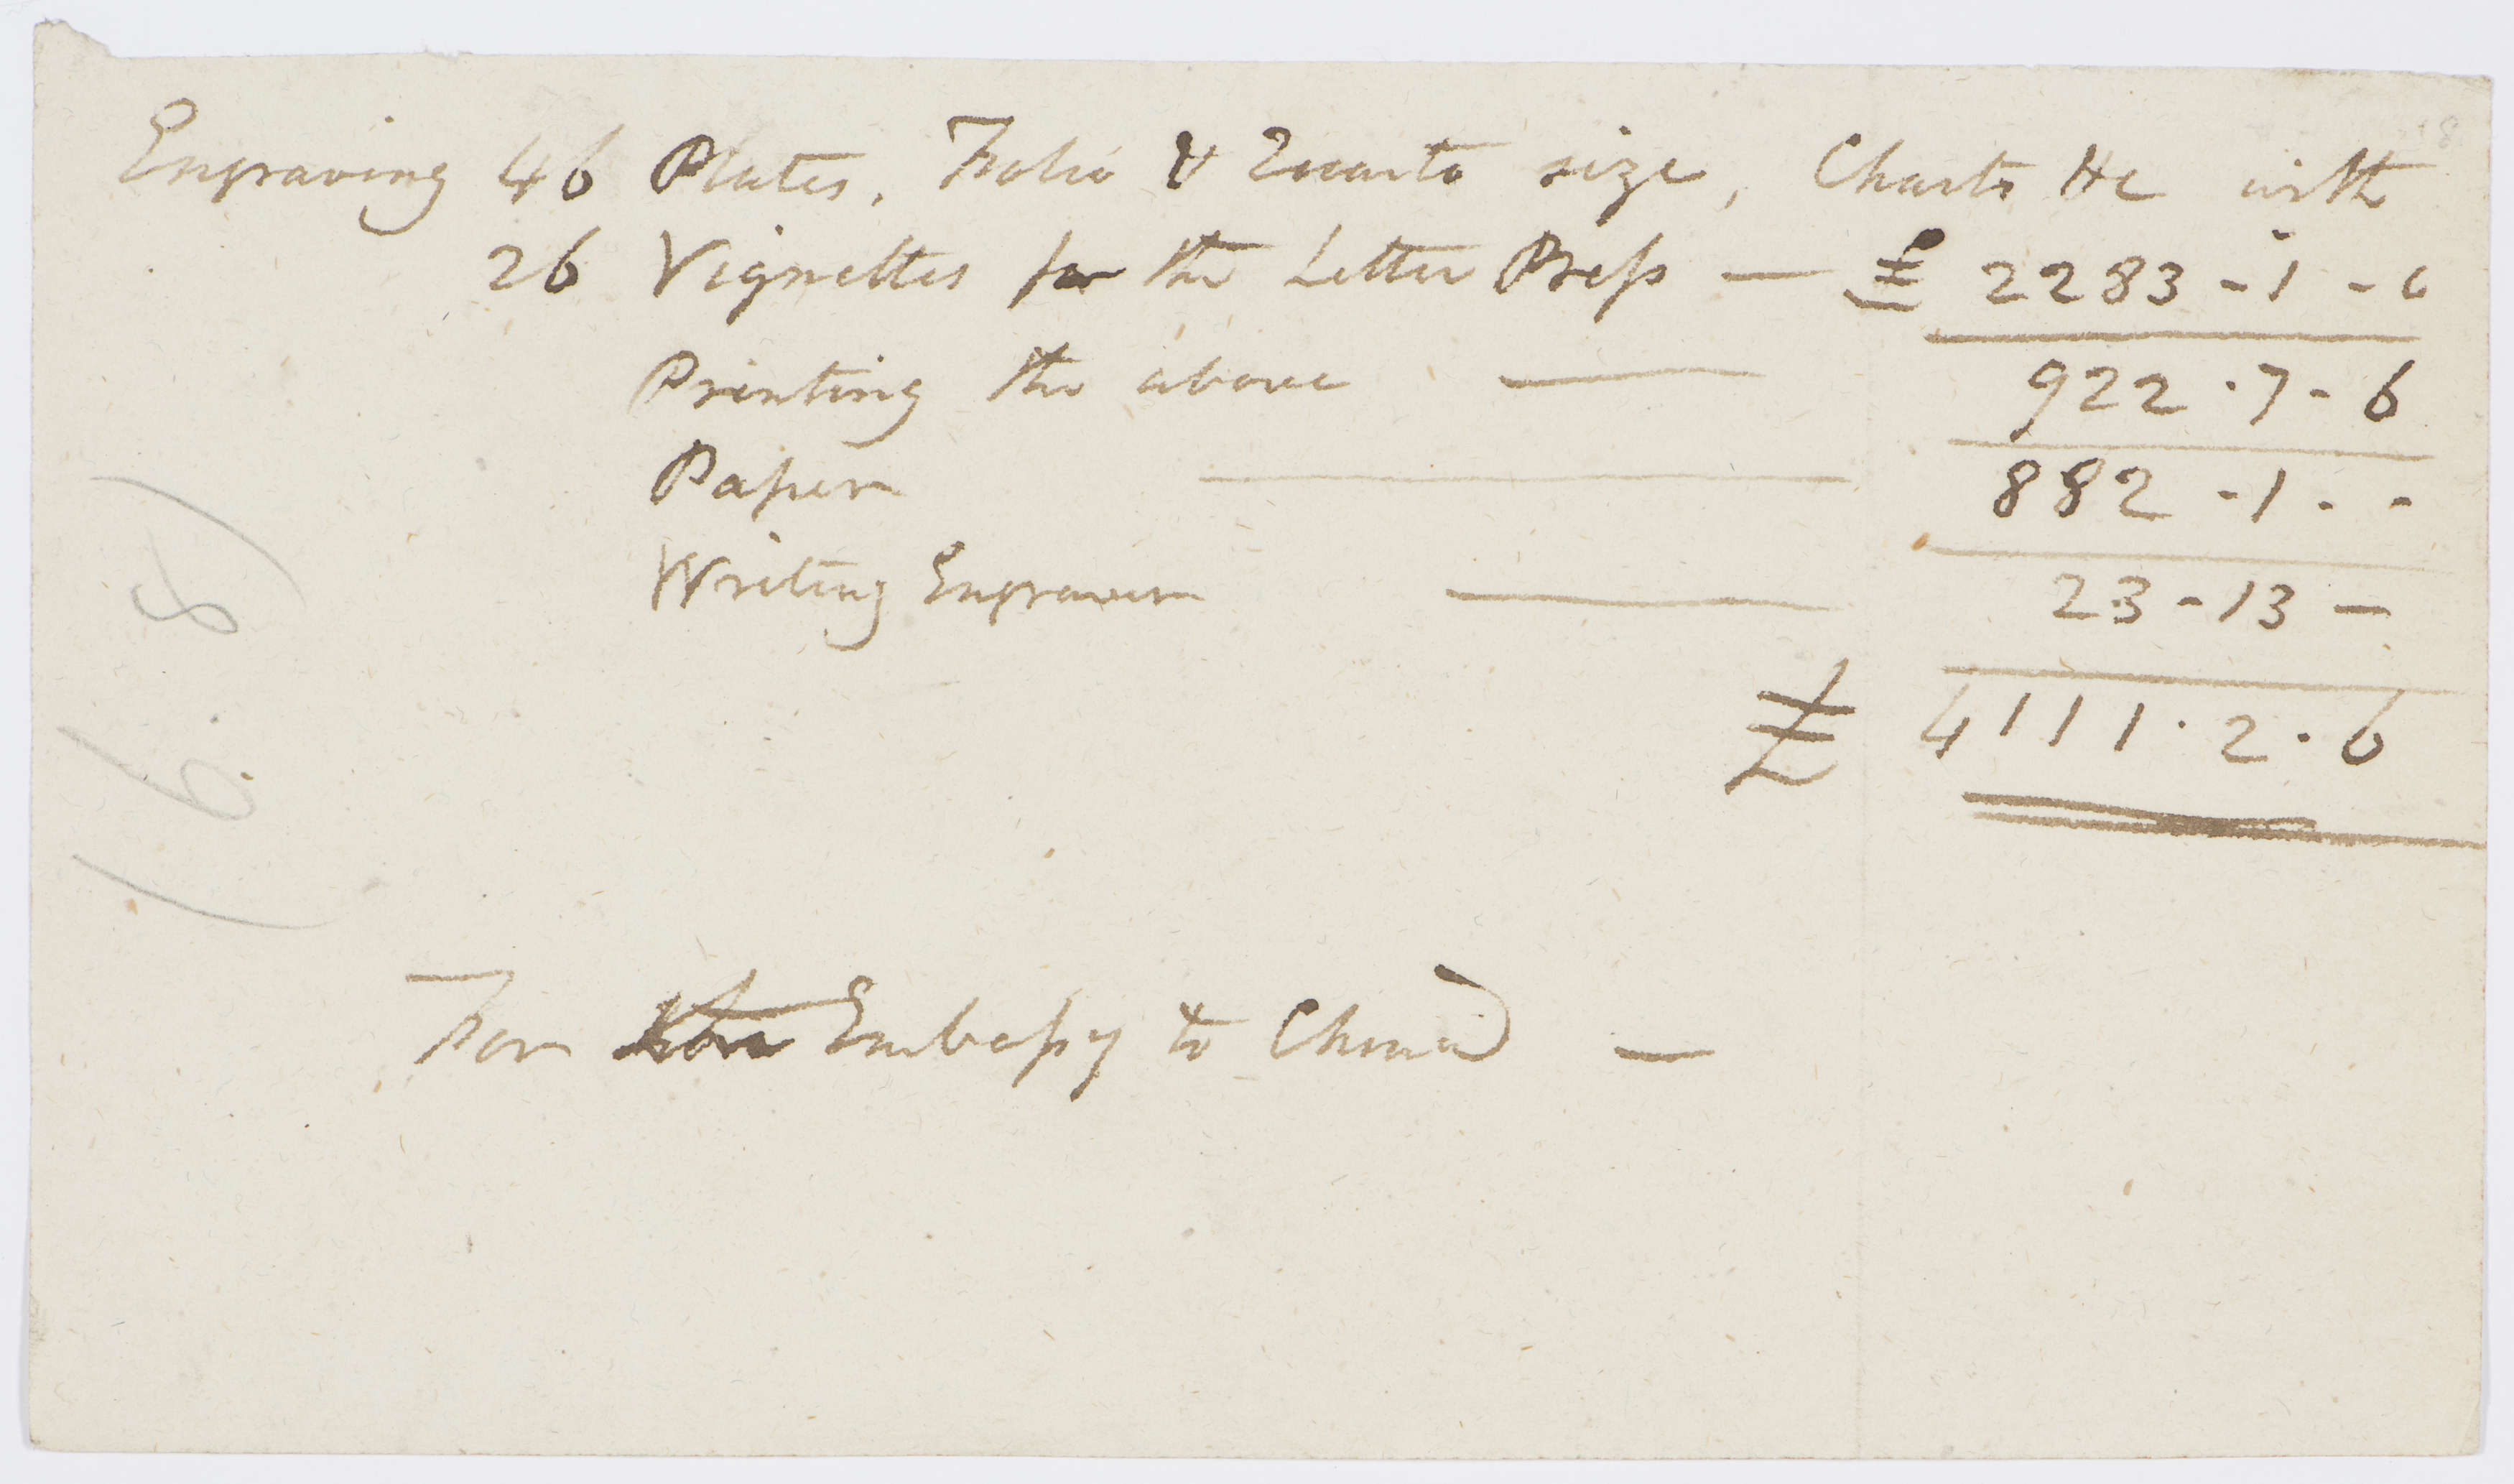 Engraving 46 Plates, Folio & Quarto size, Charts &c with
26 Vignettes for the Letter Preſs — £ 2283 - 1 - 0
Printing the above — 922 . 7 - 6
Paper — 882 - 1 - -
Writing Engraver — 23 - 13 —
£ 4111 . 2 . 6
For the Embaſsy to China —